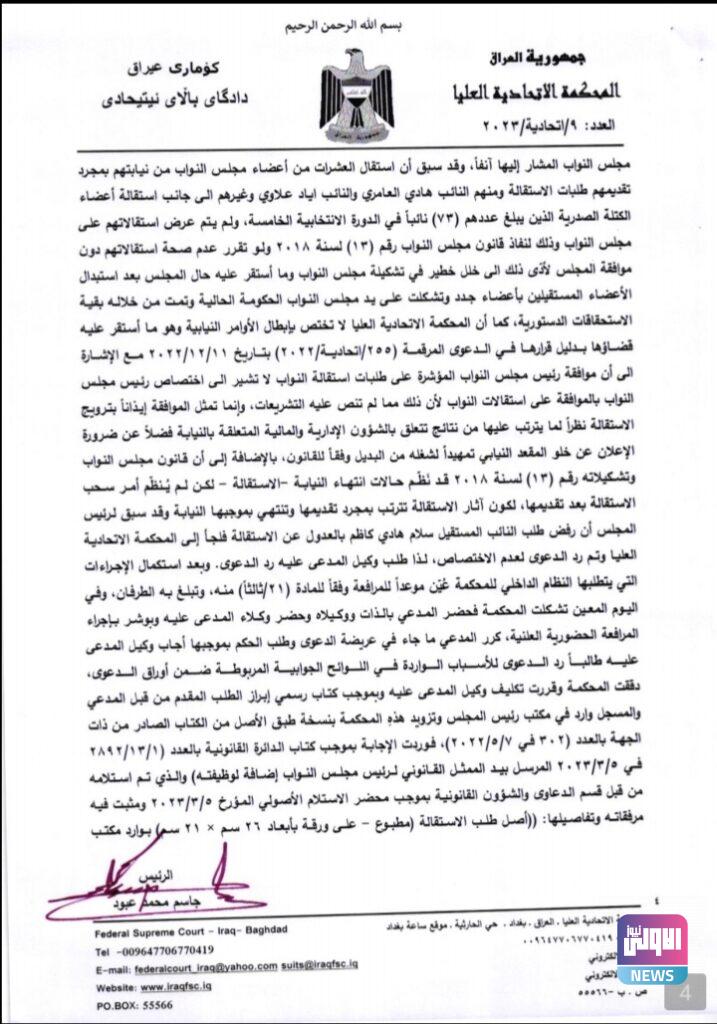 بسم الله الرحمن الرحيم
جمهورية العراق
المحكمة الاتحادية العليا
العدد: ٩/اتحادية/٢٠٢٣
كۆماری عیراق
دادگای باڵای ئیتیحادی
مجلس النواب المشار إليها آنفاً، وقد سبق أن استقال العشرات من أعضاء مجلس النواب من نيابتهم بمجرد
تقديمهم طلبات الاستقالة ومنهم النائب هادي العامري والنائب اياد علاوي وغيرهم الى جانب استقالة أعضاء
الكتلة الصدرية الذين يبلغ عددهم (٧٣) نائباً في الدورة الانتخابية الخامسة، ولم يتم عرض استقالاتهم على
مجلس النواب وذلك لنفاذ قانون مجلس النواب رقم (١٣) لسنة ٢٠١٨ ولو تقرر عدم صحة استقالاتهم دون
موافقة المجلس لأدّى ذلك الى خلل خطير في تشكيلة مجلس النواب وما أستقر عليه حال المجلس بعد استبدال
الأعضاء المستقيلين بأعضاء جدد وتشكلت على يد مجلس النواب الحكومة الحالية وتمت من خلاله بقية
الاستحقاقات الدستورية، كما أن المحكمة الاتحادية العليا لا تختص بإبطال الأوامر النيابية وهو ما أستقر عليه
قضاؤها بدليل قرارها في الدعوى المرقمة (٢٥٥/اتحادية/٢٠٢٢) بتاريخ ٢٠٢٢/١٢/١١ مع الإشارة
الى أن موافقة رئيس مجلس النواب المؤشرة على طلبات استقالة النواب لا تشير الى اختصاص رئيس مجلس
النواب بالموافقة على استقالات النواب لأن ذلك مما لم تنص عليه التشريعات، وإنما تمثل الموافقة إيذاناً بترويج
الاستقالة نظراً لما يترتب عليها من نتائج تتعلق بالشؤون الإدارية والمالية المتعلقة بالنيابة فضلاً عن ضرورة
الإعلان عن خلو المقعد النيابي تمهيداً لشغله من البديل وفقاً للقانون، بالإضافة إلى أن قانون مجلس النواب
وتشكيلاته رقم (١٣) لسنة ٢٠١٨ قد نَظّم حالات انتهاء النيابة -الاستقالة - لكن لم يُنظّم أمر سحب
الاستقالة بعد تقديمها، لكون آثار الاستقالة تترتب بمجرد تقديمها وتنتهي بموجبها النيابة وقد سبق لرئيس
المجلس أن رفض طلب النائب المستقيل سلام هادي كاظم بالعدول عن الاستقالة فلجأ إلى المحكمة الاتحادية
العليا وتم رد الدعوى لعدم الاختصاص، لذا طلب وكيل المدعى عليه رد الدعوى. وبعد استكمال الإجراءات
التي يتطلبها النظام الداخلي للمحكمة عُيّن موعداً للمرافعة وفقاً للمادة (٢١/ثالثاً) منه، وتبلغ به الطرفان، وفي
اليوم المعين تشكلت المحكمة فحضر المدعي بالذات ووكيلاه وحضر وكلاء المدعى عليه وبوشر بإجراء
المرافعة الحضورية العلنية، كرر المدعي ما جاء في عريضة الدعوى وطلب الحكم بموجبها أجاب وكيل المدعى
عليه طالباً رد الدعوى للأسباب الواردة في اللوائح الجوابية المربوطة ضمن أوراق الدعوى،
دققت المحكمة وقررت تكليف وكيل المدعى عليه وبموجب كتاب رسمي إبراز الطلب المقدم من قبل المدعي
والمسجل وارد في مكتب رئيس المجلس وتزويد هذه المحكمة بنسخة طبق الأصل من الكتاب الصادر من ذات
الجهة بالعدد (٣٠٢ في ٢٠٢٢/٥/٧)، فوردت الإجابة بموجب كتاب الدائرة القانونية بالعدد (٢٨٩٢/١٣/١
في ٢٠٢٣/٣/٥ المرسل بيد الممثل القانوني لرئيس مجلس النواب إضافة لوظيفته) والذي تم استلامه
من قبل قسم الدعاوى والشؤون القانونية بموجب محضر الاستلام الأصولي المؤرخ ٢٠٢٣/٣/٥ ومثبت فيه
مرفقاته وتفاصيلها: ((أصل طلب الاستقالة (مطبوع - على ورقة بأبعاد ٢٦ سم × ٢١ سم) بوارد مكتب
الرئيس
جاسم محمد عبود
٤
Federal Supreme Court – Iraq- Baghdad
Tel -009647706770419
E-mail: federalcourt_iraq@yahoo.com suits@iraqfsc.iq
Website: www.iraqfsc.iq
PO.BOX: 55566
الاتحادية العليا . العراق . بغداد . حي الحارثية . موقع ساعة بغداد
٠٠٩٦٤٧٧٠٦٧٧٠٤١٩
ص . ب – ٥٥٥٦٦
الاولى نيوز
NEWS
4